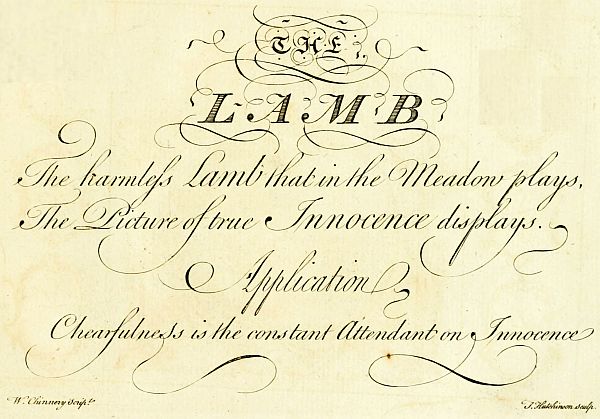 THE
LAMB
The harmleſs Lamb that in the Meadow plays,
The Picture of true Innocence displays.
Application
Chearfulneſs is the constant Attendant on Innocence
W. Chinnery Scrip.t
J. Hutchinson sculp.